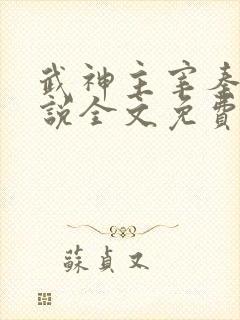 武神主宰秦
說全文免費
蘇貞又